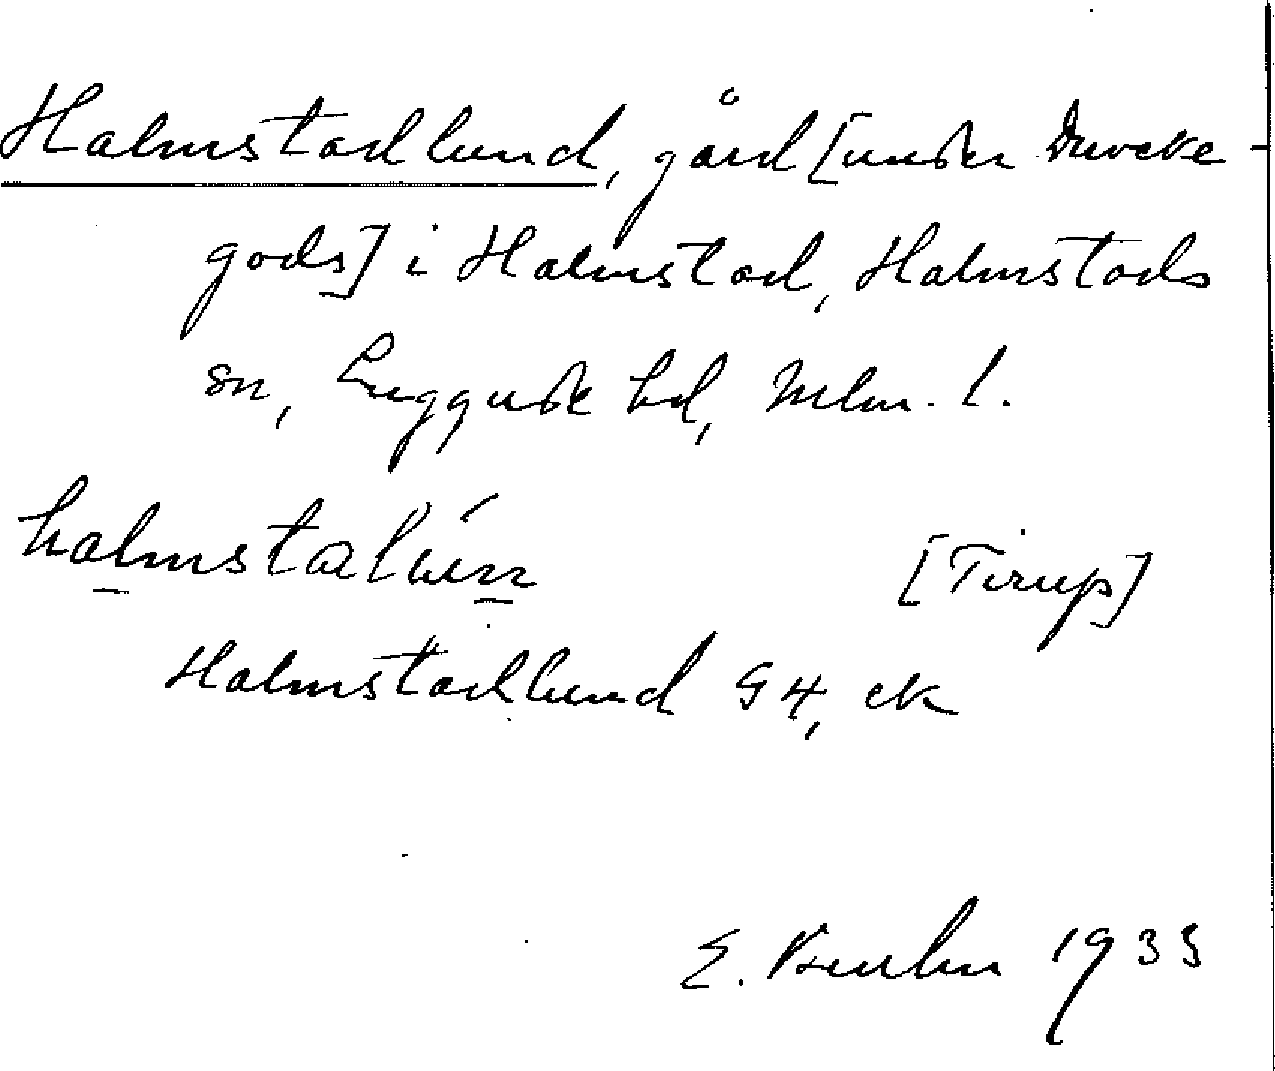 Halmstadlund, gård [under Duveke-
gods] i Halmstad, Halmstads
sn, Luggude hd, Mlm. l.
[Tirup]
Halmstadlund G4, ek
E. 1933